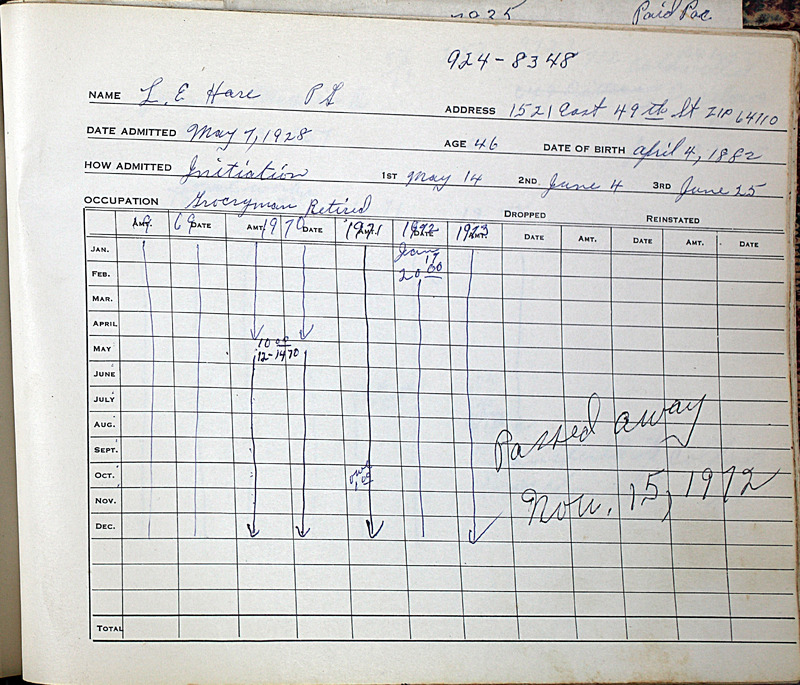 Paid Dec.
924-8348
NAME L. E Hare P S
ADDRESS 1521 East 49th St ZIP 64110
DATE ADMITTED May 7, 1928 AGE 46 DATE OF BIRTH April 4, 1882
HOW ADMITTED Initiation 1ST May 14 2ND June 4 3RD June 25
OCCUPATION Grocryman Retired
DROPPED REINSTATED
AMT. 69 DATE AMT. 1970 DATE 1971 1972 DATE 1973 AMT. DATE AMT. DATE AMT. DATE
JAN. Jan 17
FEB. 20.00
MAR.
APRIL
MAY 10 00
12-14 70
JUNE
JULY
AUG.
Passed away
SEPT.
OCT.
NOV.
Nov. 15, 1972
DEC.
TOTAL